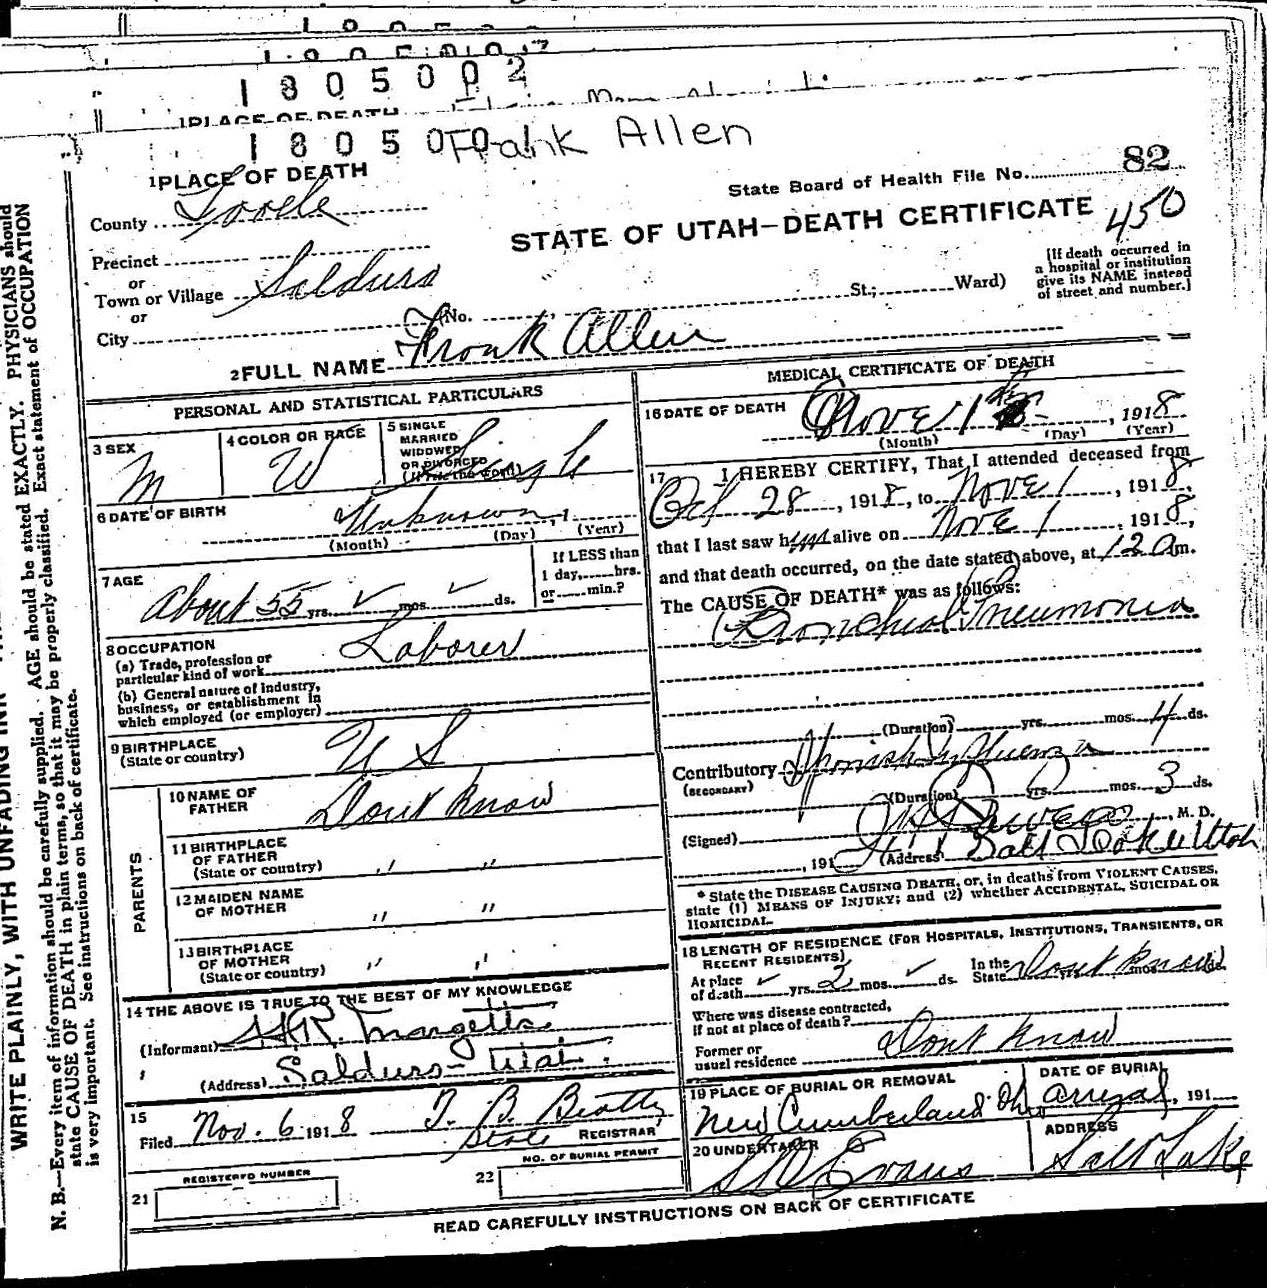 1805002
1 PLACE OF DEATH
180500
Frank Allen
1 PLACE OF DEATH
State Board of Health File No. 82
County Tooele
STATE OF UTAH—DEATH CERTIFICATE 450
Precinct
or
Town or Village Salduro
or
City
(No. St.; Ward)
[If death occurred in
a hospital or institution
give its NAME instead
of street and number.]
2 FULL NAME Frank Allen
PERSONAL AND STATISTICAL PARTICULARS
3 SEX M
4 COLOR OR RACE W
5 SINGLE
MARRIED
WIDOWED
OR DIVORCED
(Write the word) Single
6 DATE OF BIRTH Unknown, 1
(Month) (Day) (Year)
7 AGE
About 55 yrs. ✓ mos. ✓ ds.
If LESS than
1 day, hrs.
or min.?
8 OCCUPATION
(a) Trade, profession or
particular kind of work Laborer
(b) General nature of industry,
business, or establishment in
which employed (or employer)
9 BIRTHPLACE
(State or country) U S
PARENTS
10 NAME OF
FATHER Dont Know
11 BIRTHPLACE
OF FATHER
(State or country) " "
12 MAIDEN NAME
OF MOTHER " "
13 BIRTHPLACE
OF MOTHER
(State or country) " "
14 THE ABOVE IS TRUE TO THE BEST OF MY KNOWLEDGE
(Informant) H.R. Margetts
(Address) Salduro - Utah
15
Filed Nov. 6 1918 T. B. Beatty
State REGISTRAR
21 REGISTERED NUMBER
22 NO. OF BURIAL PERMIT
MEDICAL CERTIFICATE OF DEATH
16 DATE OF DEATH Nove 1, 1918
(Month) (Day) (Year)
17 I HEREBY CERTIFY, That I attended deceased from
Oct 28, 1918, to Nove 1, 1918,
that I last saw him alive on Nove 1, 1918,
and that death occurred, on the date stated above, at 12 a m.
The CAUSE OF DEATH* was as follows:
Bronchial Pneumonia
(Duration) yrs. mos. 4 ds.
Contributory Spanish Influenza
(SECONDARY)
(Duration) yrs. mos. 3 ds.
(Signed) M. D.
, 191 (Address) Salt Lake Utah
* State the DISEASE CAUSING DEATH, or, in deaths from VIOLENT CAUSES,
state (1) MEANS OF INJURY; and (2) whether ACCIDENTAL, SUICIDAL OR
HOMICIDAL.
18 LENGTH OF RESIDENCE (FOR HOSPITALS, INSTITUTIONS, TRANSIENTS, OR
RECENT RESIDENTS)
At place
of death ✓ yrs. 2 mos. ✓ ds.
In the
State Dont Know mos. ds.
Where was disease contracted,
if not at place of death?
Former or
usual residence Dont Know
19 PLACE OF BURIAL OR REMOVAL
New Cumberland Ohio
DATE OF BURIAL
, 191
20 UNDERTAKER
Evans
ADDRESS
Salt Lake
READ CAREFULLY INSTRUCTIONS ON BACK OF CERTIFICATE
WRITE PLAINLY, WITH UNFADING INK
N. B.—Every item of information should be carefully supplied. AGE should be stated EXACTLY. PHYSICIANS should
state CAUSE OF DEATH in plain terms, so that it may be properly classified. Exact statement of OCCUPATION
is very important. See instructions on back of certificate.